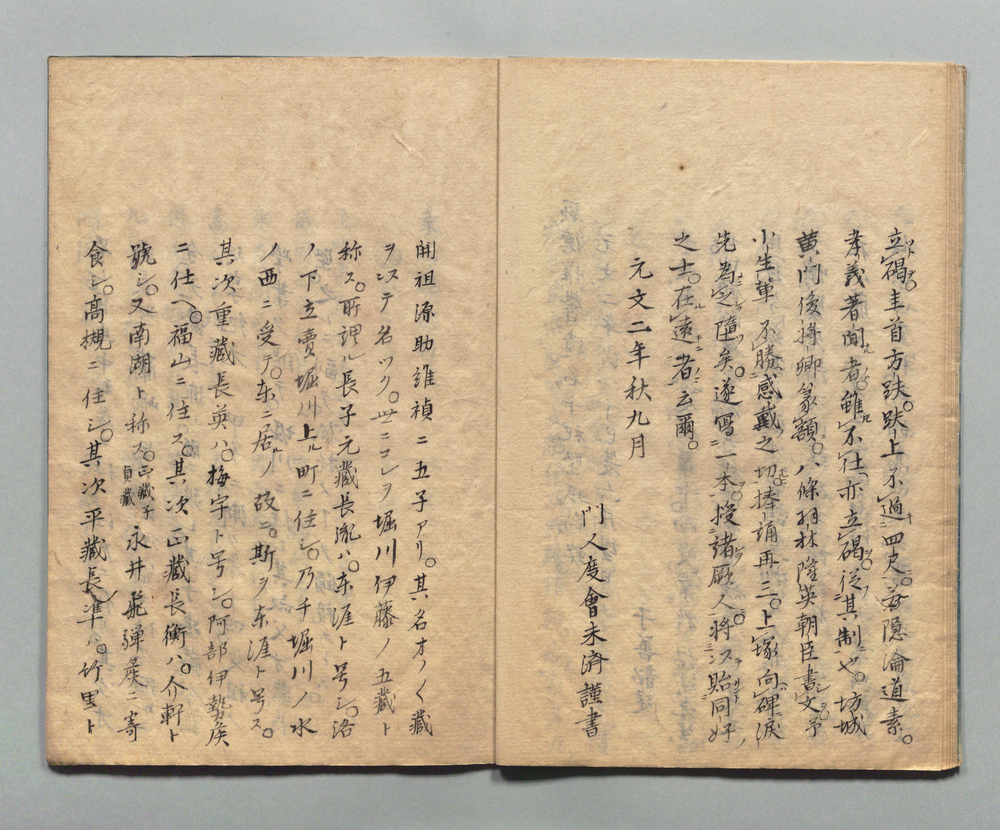 立碣圭首方趺。趺上不過四尺。若隠淪道素。
孝義著聞者雖不仕亦立碣。從其制也。坊城
黄門俊將卿篆額。八條羽林隆英朝臣書文予
小生輩不勝感戴之切捧誦再三。上塚向碑涙
先為之隨矣。遂寫一本授諸厥人将以貽同好
之士。在遠者云爾。
元文二年秋九月
門人度會末濟謹書
開祖源助維禎ニ五子アリ。其名オノ〱藏
ヲ以テ名ツク。世ニコレヲ堀川伊藤ノ五藏ト
称ス。所理ル長子元藏長胤ハ。东涯ト号シ。洛
ノ下立賣堀川上ル町ニ住シ。乃チ堀川ノ水
ノ西ニ受テ。东ニ居ルノ故ニ。斯ヲ东涯ト号ス。
其次重藏長英ハ。梅宇ト号シ。阿部伊勢侯
ニ仕ヘ。福山ニ住ス。其次正藏長衡ハ。介軒ト
號シ。又南湖ト称ス。正藏一ニ貞藏 永井飛彈侯ニ寄
食シ。高槻ニ住シ。其次平藏長準ハ。竹里ト